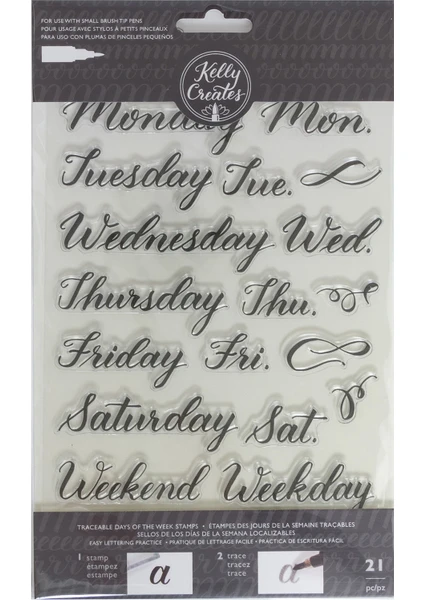 FOR USE WITH SMALL BRUSH TIP PENS
POUR USAGE AVEC STYLOS À PETITS PINCEAUX
PARA USO CON PLUMAS DE PINCELES PEQUEÑOS
Kelly
Creates
Monday Mon.
Tuesday Tue.
Wednesday Wed.
Thursday Thu.
Friday Fri.
Saturday Sat.
Weekend Weekday
TRACEABLE DAYS OF THE WEEK STAMPS • ÉTAMPES DES JOURS DE LA SEMAINE TRAÇABLES
SELLOS DE LOS DÍAS DE LA SEMANA LOCALIZABLES
EASY LETTERING PRACTICE • PRATIQUE DE LETTRAGE FACILE • PRÁCTICA DE ESCRITURA FÁCIL
1 stamp
étampez
estampe
a
2 trace
tracez
trace
a
21
pc/pz